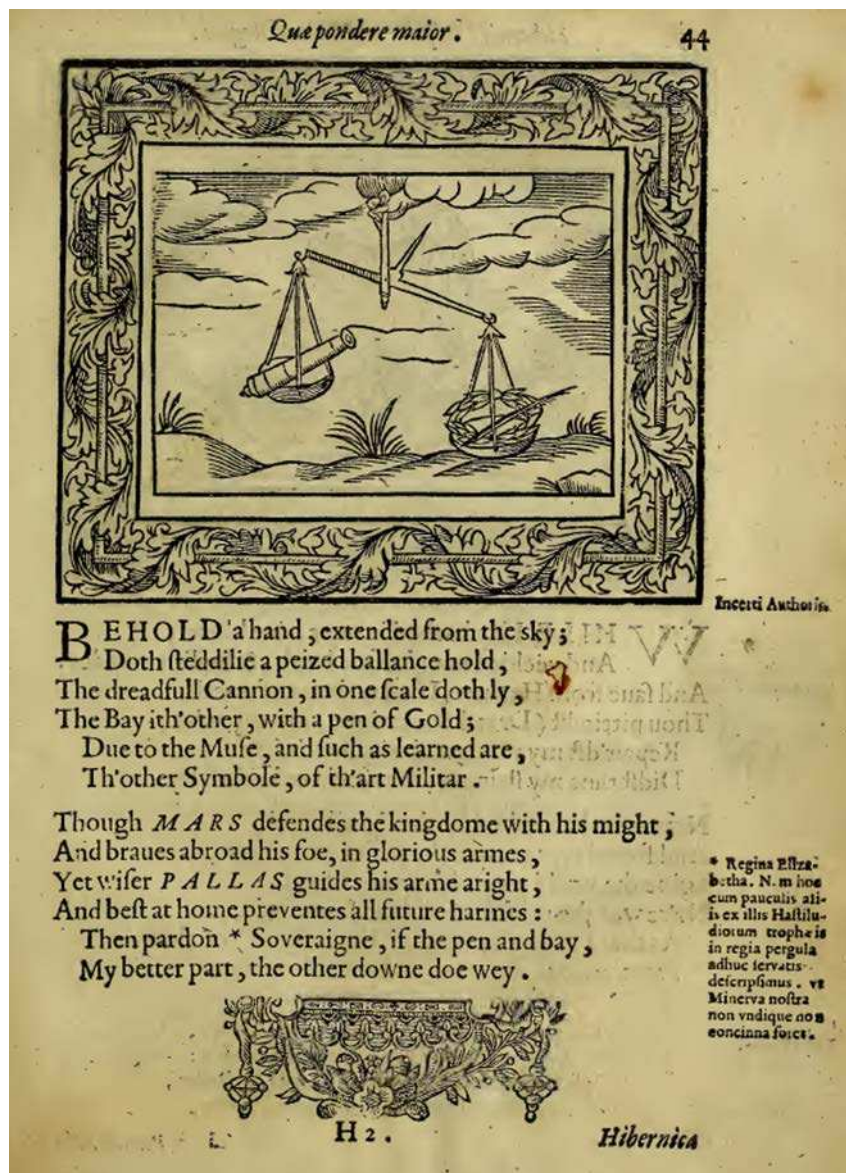 Quæ pondere maior.
44
Incerti Authoris.
BEHOLD a hand, extended from the sky;
Doth ſteddilie a peized ballance hold,
The dreadfull Cannon, in one ſcale doth ly,
The Bay ith'other, with a pen of Gold;
Due to the Muſe, and ſuch as learned are,
Th'other Symbole, of th'art Militar.
Though MARS defendes the kingdome with his might,
And braues abroad his foe, in glorious armes,
Yet wiſer PALLAS guides his arme aright,
And beſt at home preventes all future harmes:
Then pardon * Soveraigne, if the pen and bay,
My better part, the other downe doe wey.
* Regina Eliza-
betha. Nam hoc
cum pauculis ali-
is ex illis Haſtilu-
diorum trophæis
in regia pergula
adhuc ſervatis
deſcripſimus. vt
Minerva noſtra
non vndique non
concinna foret.
H 2.
Hibernica